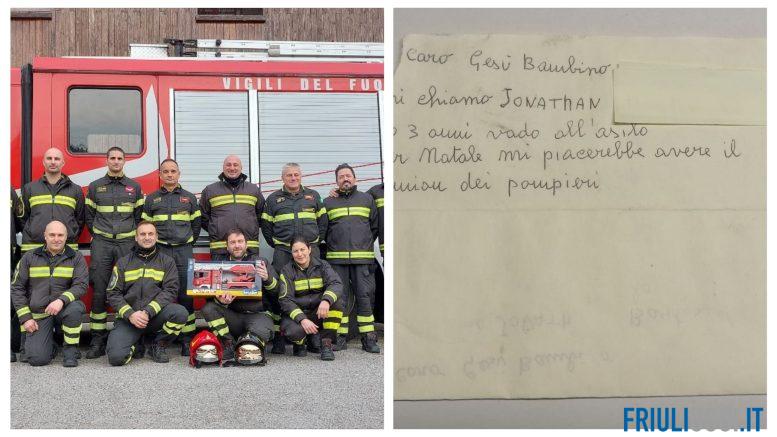 VIGILI DEL FUO
caro Gesù Bambino
mi chiamo JONATHAN
o 3 anni vado all'asilo
er Natale mi piacerebbe avere il
amion dei pompieri
FRIULI .IT